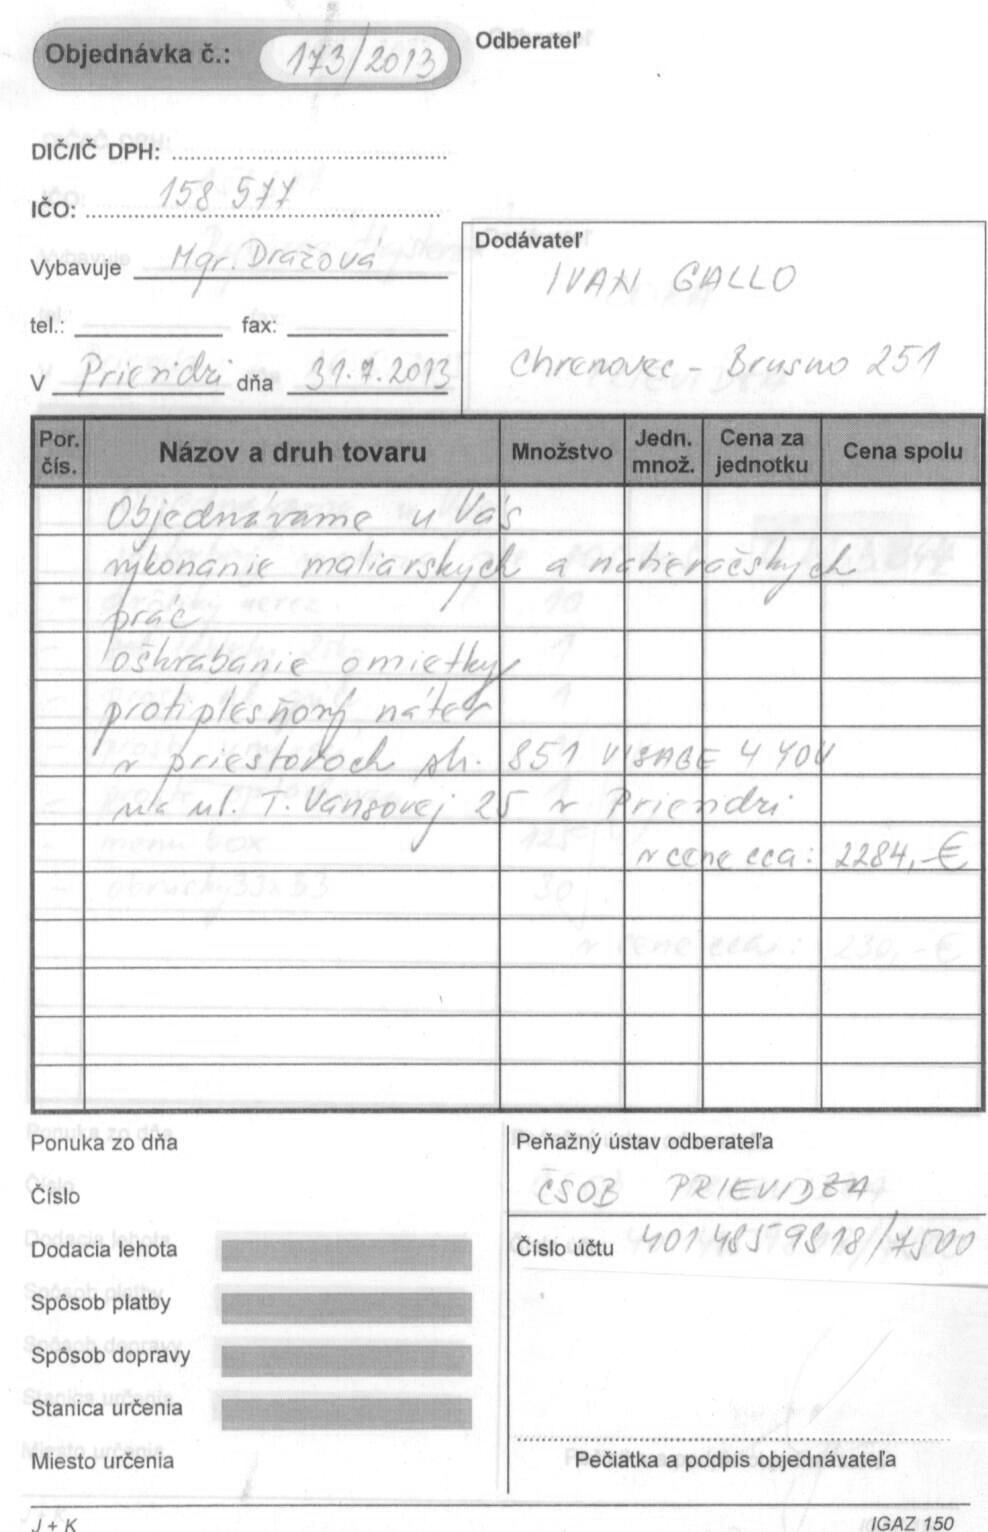 Objednávka č.: 173/2013
Odberateľ
DIČ/IČ DPH:
IČO: 158 577
Vybavuje Mgr. Dražová
tel.: fax:
V Prievidzi dňa 31.7.2013
Dodávateľ
IVAN GALLO
Chrenovec - Brusno 251
Por. čís. Názov a druh tovaru Množstvo Jedn. množ. Cena za jednotku Cena spolu
Objednávame u Vás
vykonanie maliarskych a natieračských
prác
oškrabanie omietky
protiplesňový náter
v priestoroch 851
na ul. T. Vansovej 25 v Prievidzi
v cene cca: 2284,-€
menu box 125
obrúsky 33x33 30
v cene cca: 230,-€
Ponuka zo dňa
Číslo
Dodacia lehota
Spôsob platby
Spôsob dopravy
Stanica určenia
Miesto určenia
Peňažný ústav odberateľa
ČSOB PRIEVIDZA
Číslo účtu 4014859818/7500
Pečiatka a podpis objednávateľa
J + K
IGAZ 150